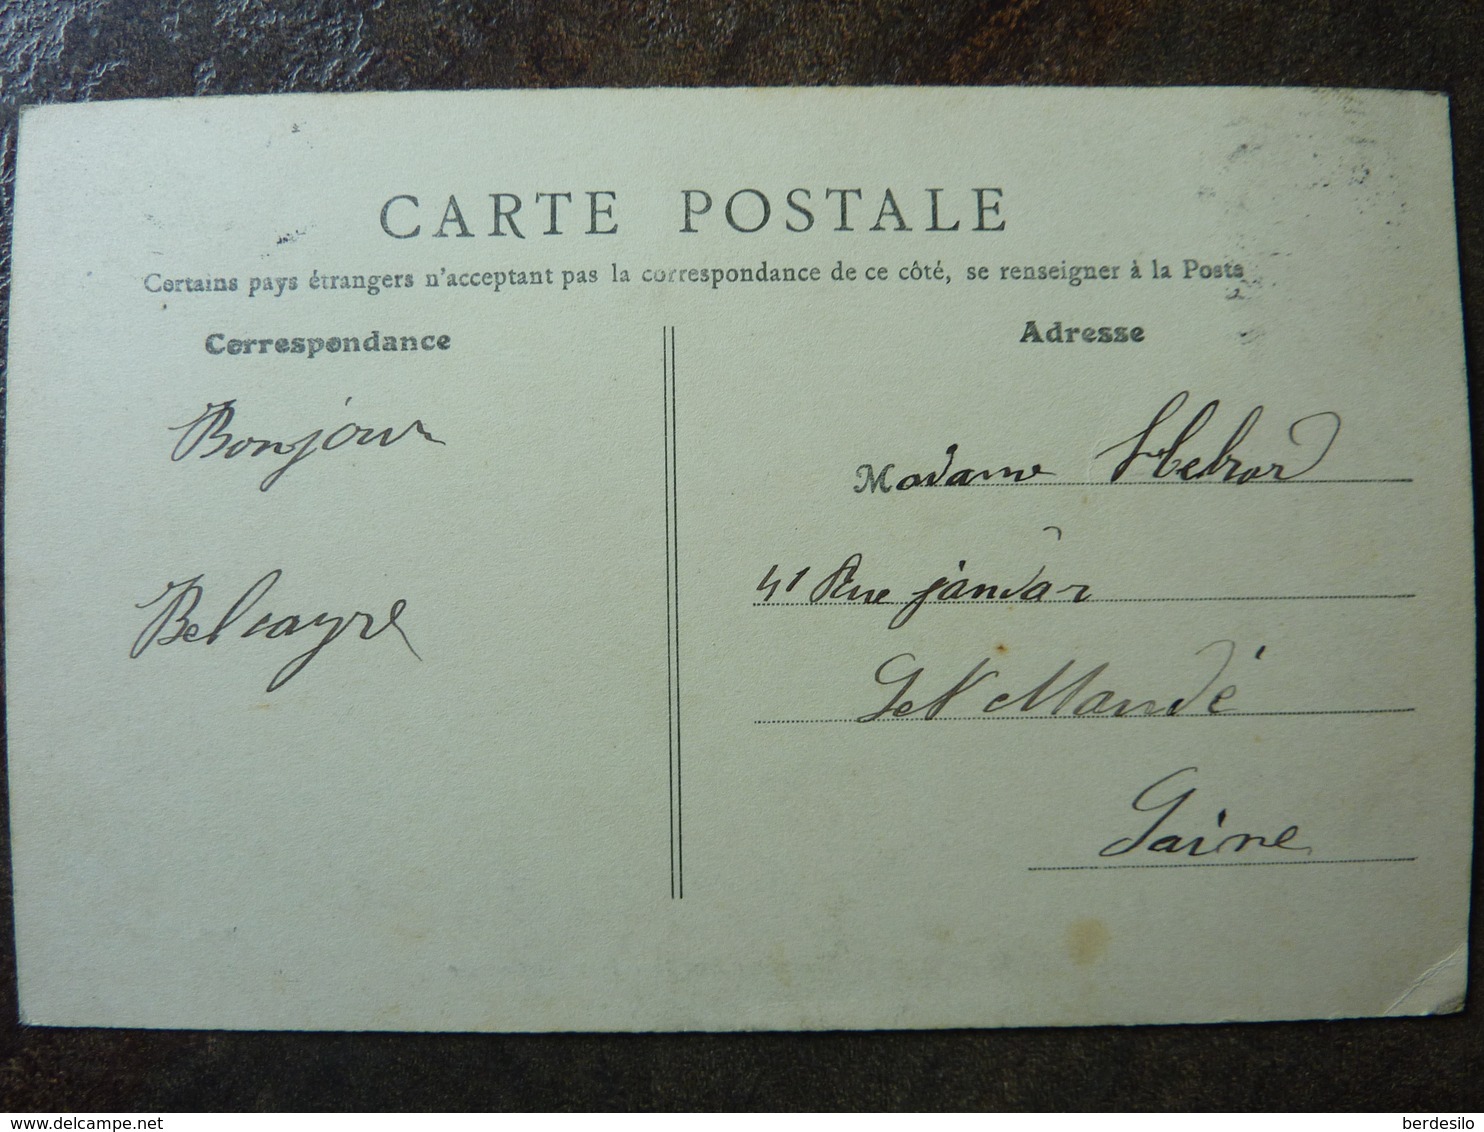 CARTE POSTALE
Certains pays étrangers n'acceptant pas la correspondance de ce côté, se renseigner à la Poste
Correspondance
Adresse
Bonjour
Belcayre
Madame Hebrar
41 Rue janvar
St Mandé
Saine
delcampe.net
berdesilo